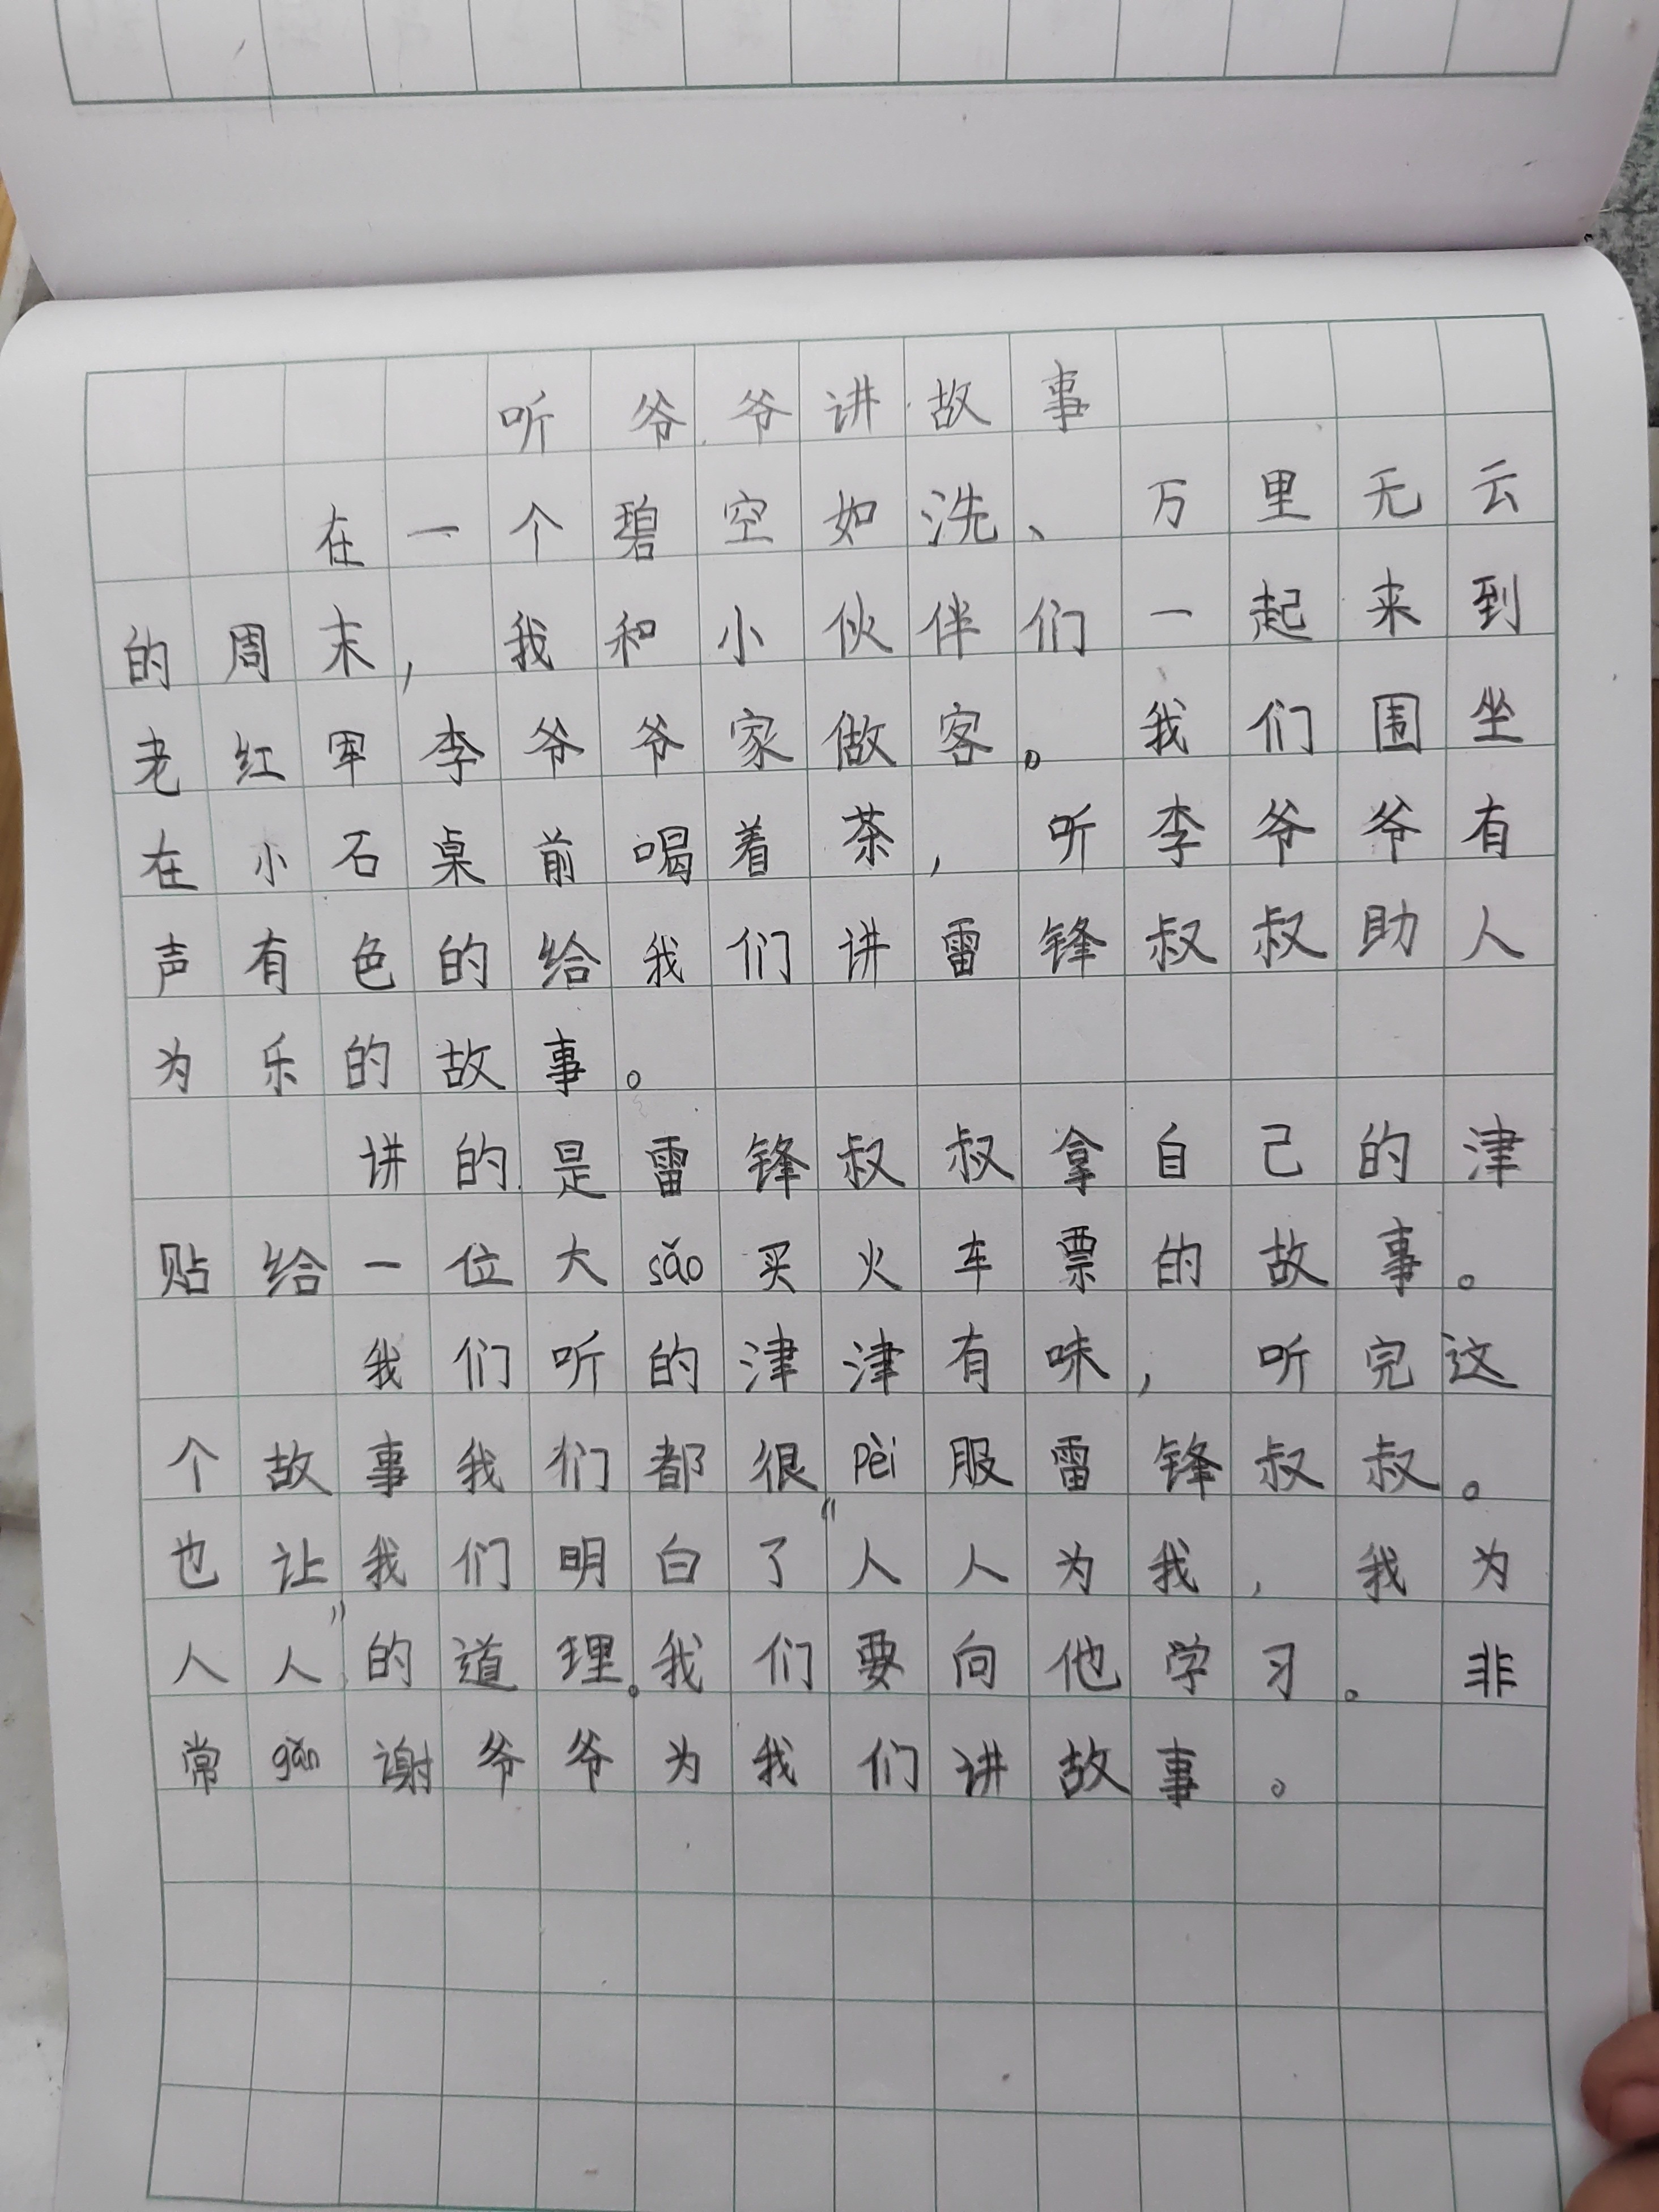 听爷爷讲故事
在一个碧空如洗、万里无云
的周末,我和小伙伴们一起来到
老红军李爷爷家做客。我们围坐
在小石桌前喝着茶,听李爷爷有
声有色的给我们讲雷锋叔叔助人
为乐的故事。
讲的是雷锋叔叔拿自己的津
贴给一位大sǎo买火车票的故事。
我们听的津津有味,听完这
个故事我们都很pèi服雷锋叔叔。
也让我们明白了“人人为我,我为
人人”的道理。我们要向他学习。非
常gǎn谢爷爷为我们讲故事。